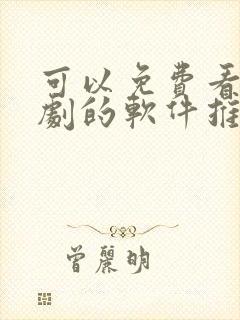 可以免費看
劇的軟件推
曾麗明